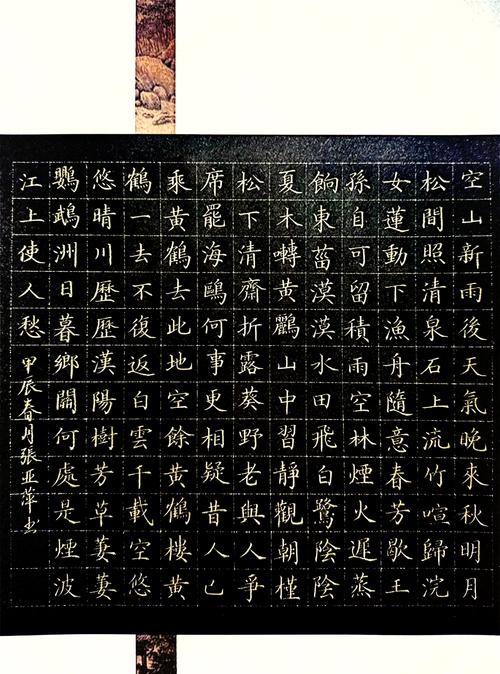 空山新雨後天氣晚來秋明月
松間照清泉石上流竹喧歸浣
女蓮動下漁舟隨意春芳歇王
孫自可留積雨空林煙火遲蒸
餉東菑漠漠水田飛白鷺陰陰
夏木囀黃鸝山中習靜觀朝槿
松下清齋折露葵野老與人爭
席罷海鷗何事更相疑昔人已
乘黃鶴去此地空餘黃鶴樓黃
鶴一去不復返白雲千載空悠
悠晴川歷歷漢陽樹芳草萋萋
鸚鵡洲日暮鄉關何處是煙波
江上使人愁 甲辰春月張亚萍书